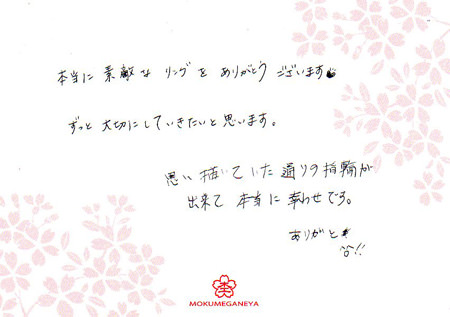 本当に 素敵な リングを ありがとう ございます
ずっと 大切にして いきたいと 思います。
思い描いていた通りの指輪が
出来て 本当に 幸わせです。
ありがと
!!
MOKUMEGANEYA